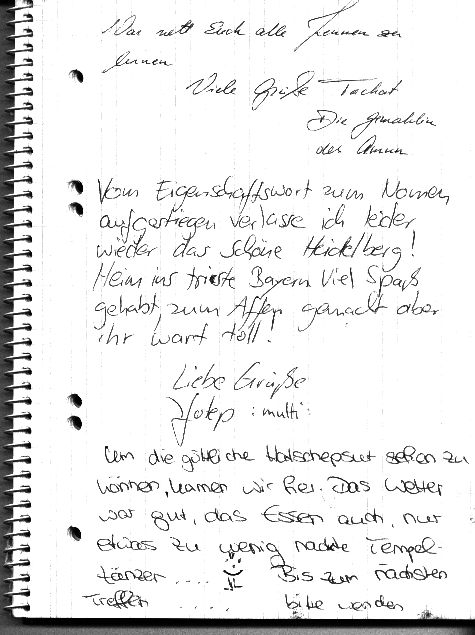 War nett Euch alle kennen zu
lernen
Viele Grüße Tachat
Die Gemahlin
des Amun
Vom Eigenschaftswort zum Nomen
aufgestiegen verlasse ich leider
wieder das schöne Heidelberg!
Heim ins triste Bayern Viel Spaß
gehabt, zum Affen gemacht aber
ihr wart toll!
Liebe Grüße
Hotep :multi:
Um die göttliche Hatschepsut sehen zu
können, kamen wir her. Das Wetter
war gut, das Essen auch, nur
etwas zu wenig nackte Tempel-
tänzer ....
Bis zum nächsten
Treffen ..... bitte wenden